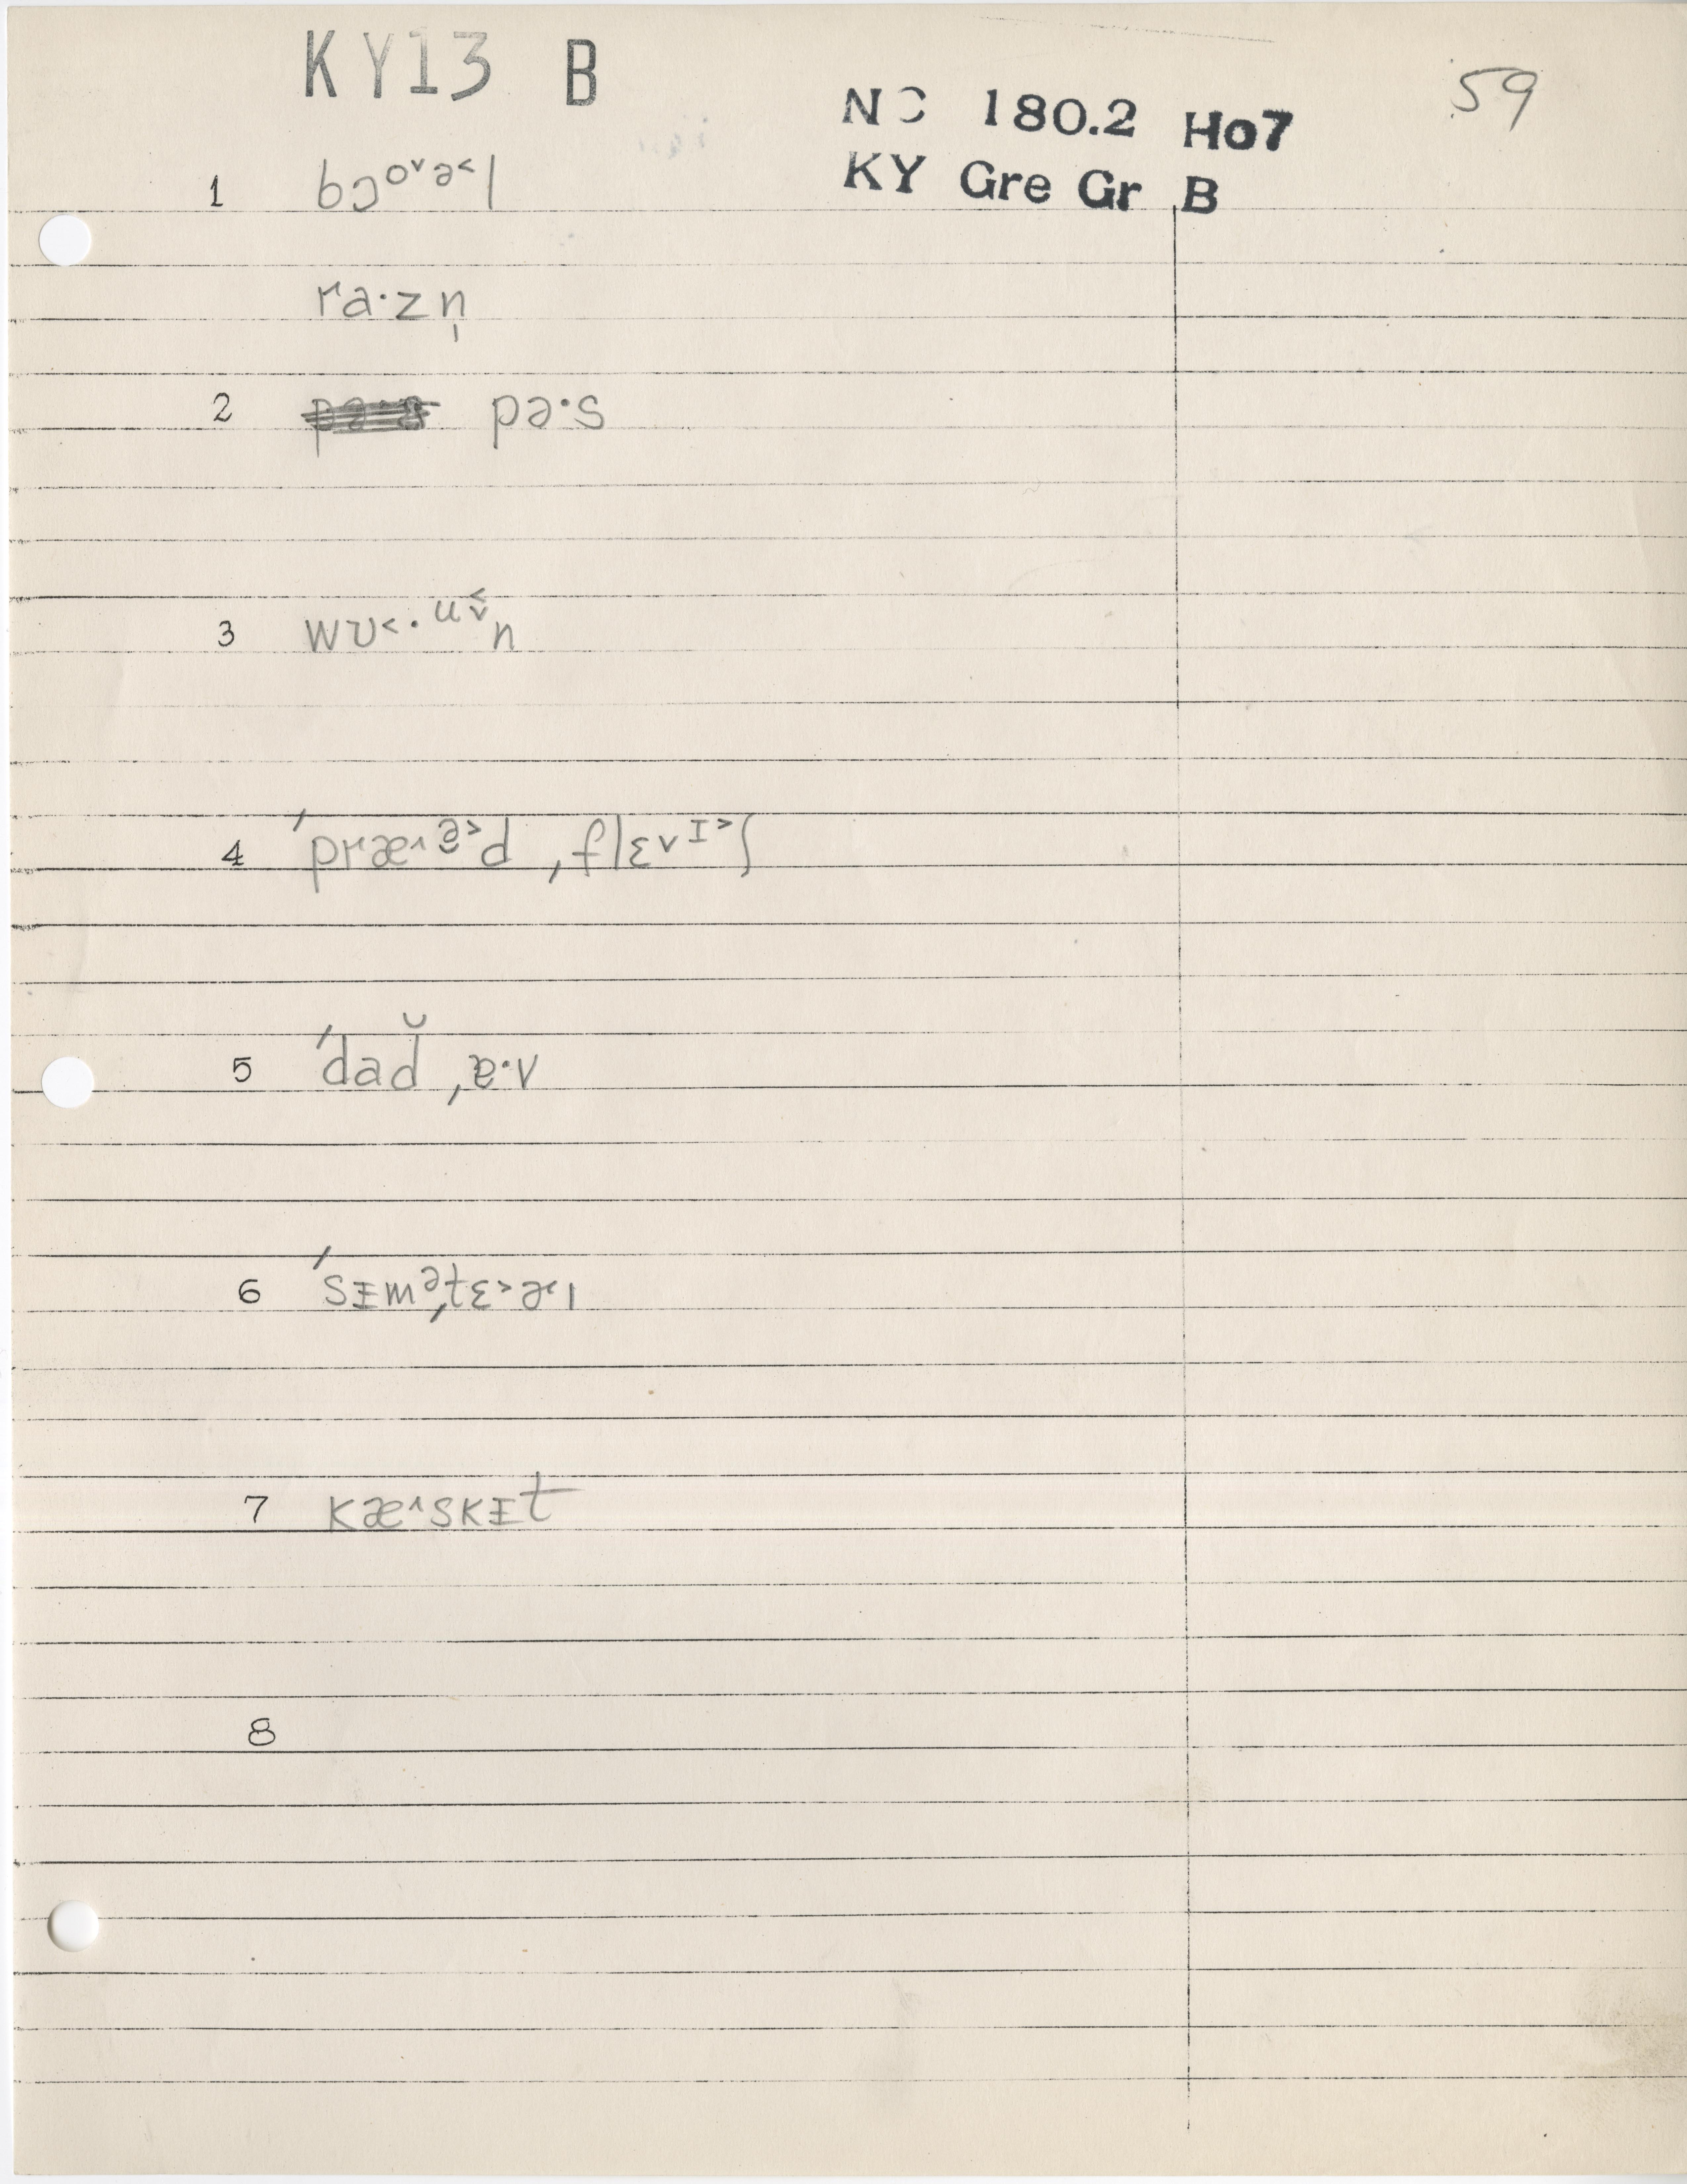 KY13 B
59
NC 180.2 Ho7
KY Gre Gr B
1 bɔoᵛə˂l
ra·zn̩
2 pə·s
3 wʊ˂·u˂̬n
4 ˈpræ˄ɐ˃d ˌflɛ˅ɪ˃ʃ
5 ˈdad̆ ˌɐ·v
6 ˈsɪməˌtɛ˃ɚɪ
7 kæ˄skɪt
8